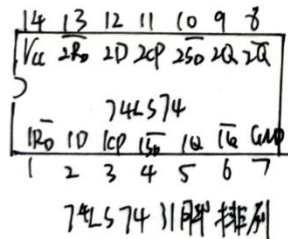 14 13 12 11 10 9 8
Vcc 2R̅D 2D 2CP 2S̅D 2Q 2Q̅
74LS74
1R̅D 1D 1CP 1S̅D 1Q 1Q̅ GND
1 2 3 4 5 6 7
74LS74 引脚排列